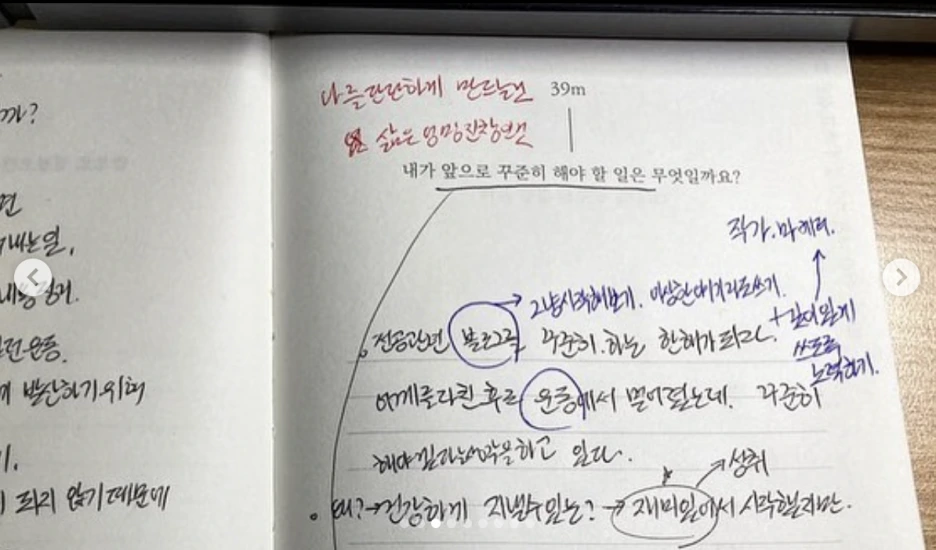 까?
면
내는일,
운동.
게 발산하기 위해
지 않기 때문에
나를단단하게 만드는건 39m
삶은 엉망진창
내가 앞으로 꾸준히 해야 할 일은 무엇일까요?
작가.마케터.
그냥시작해보기. 이상한이야기라도쓰기.
+깊이있게
쓰도록
노력하기.
전공관련 블로그를 꾸준히.하는 한해가되라.
어깨를다친 후로 운동에서 멀어졌는데. 꾸준히
해야겠다는생각을하고 있다.
성취
왜?→건강하게 지낼수있는?→재미있에서 시작했지만.